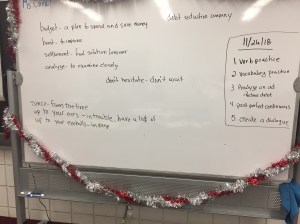 budget - a plan to spend and save money
debt reduction company
boost - to improve
settlement - final solution
analyze - to examine closely
don't hesitate - don't wait
up to your ears - in trouble, have a lot of
up to your eyeballs - in deep
11/26/18
1 Verb practice
2 Vocabulary practice
3 Analyze an ad
4 past perfect continuous
5 create a dialogue